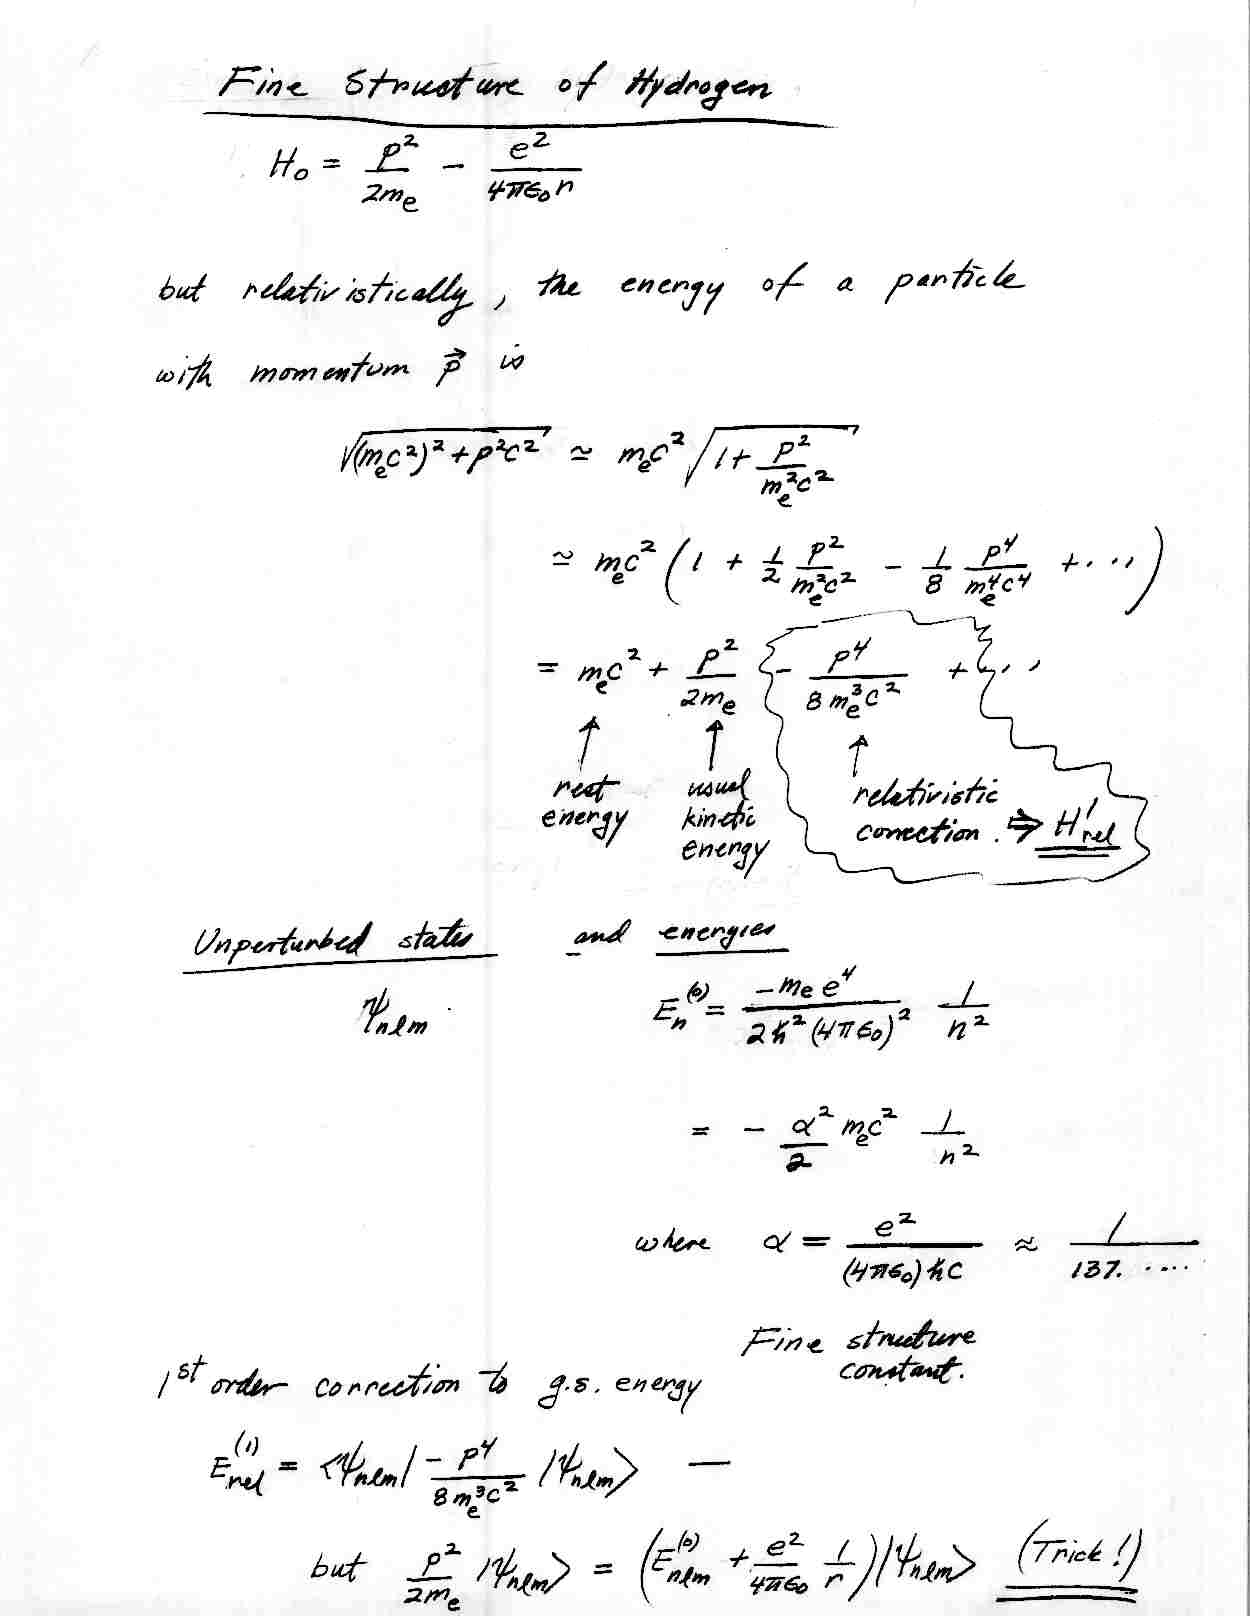 Fine Structure of Hydrogen
H₀ = p²/2mₑ − e²/4πϵ₀r
but relativistically, the energy of a particle
with momentum p⃗ is
√((mₑc²)² + p²c²) ≃ mₑc² √(1 + p²/mₑ²c²)
≃ mₑc² (1 + 1/2 p²/mₑ²c² − 1/8 p⁴/mₑ⁴c⁴ + ...)
= mₑc² + p²/2mₑ − p⁴/8mₑ³c² + ...
↑ rest energy
↑ usual kinetic energy
↑ relativistic correction. ⇒ H'rel
Unperturbed states and energies
ψnlm Eₙ⁽⁰⁾ = −mₑe⁴/2ħ²(4πϵ₀)² 1/n²
= − α²/2 mₑc² 1/n²
where α = e²/(4πϵ₀)ħc ≈ 1/137. ....
Fine structure
constant.
1st order correction to g.s. energy
Erel⁽¹⁾ = <ψnlm| −p⁴/8mₑ³c² |ψnlm> —
but p²/2mₑ |ψnlm> = (Enlm⁽⁰⁾ + e²/4πϵ₀ 1/r)|ψnlm> (Trick!)